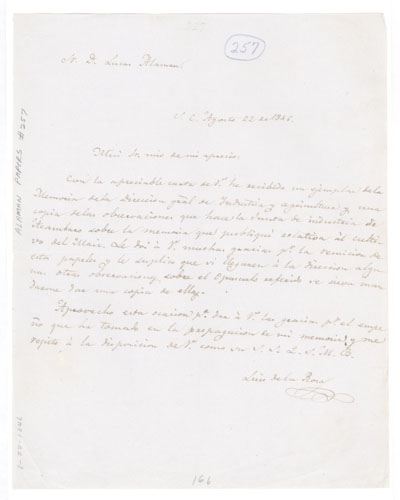 257
S. D. Lucas Alaman.
S. C. Agosto 22 de 1846.
Mui Sr. mio de mi aprecio.
Con la apreciable carta de V. he recibido un ejemplar de la
Memoria de la Direccion gral de Industria y agricultura y una
copia de las observaciones que hace la Junta de industria de
sobre la memoria que publiqué relativa al culti-
vo del Maiz. Le doi á V. muchas gracias pr. la remision de
estos papeles y le suplico que si llegaren á la direccion algu-
nas otras observaciones sobre el Opusculo referido se sirva man-
darme dar una copia de ellas.
Aprovecho esta ocasion pa. dar á V. las gracias pr. el empe-
ño que ha tomado en la propagacion de mi memoria y me
repito á la disposicion de V. como su S. S. Q. S. M. B.
Luis de la Rosa
166
ALAMAN PAPERS #257
8-22-1846